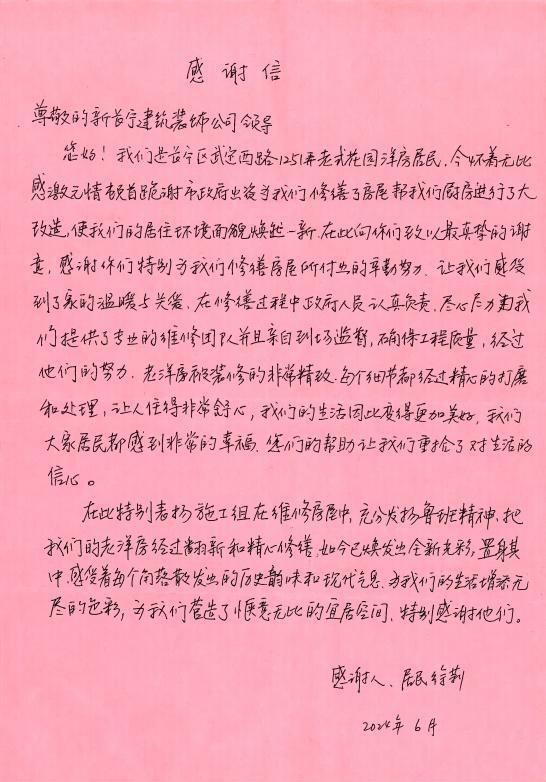 感谢信
尊敬的新首宁建筑装饰公司领导
您好！我们是静安区武定西路1251弄老式花园洋房居民，今怀着无比
感激之情顿首跪谢市政府出资为我们修缮了房屋帮我们厨房进行了大
改造，使我们的居住环境面貌焕然一新，在此向你们致以最真挚的谢
意，感谢你们特别为我们修缮房屋所付出的辛勤努力，让我们感受
到了家的温暖与关爱，在修缮过程中政府人员认真负责，尽心尽力为我
们提供了专业的维修团队并且亲自到场监督，确保工程质量，经过
他们的努力，老洋房被装修的非常精致，每个细节都经过精心的打磨
和处理，让人住得非常舒心，我们的生活因此变得更加美好，我们
大家居民都感到非常的幸福，您们的帮助让我们重拾了对生活的
信心。
在此特别表扬施工组在维修房屋中，充分发扬鲁班精神，把
我们的老洋房经过翻新和精心修缮，如今已焕发出全新光彩，置身其
中，感受着每个角落散发出的历史韵味和现代气息，为我们的生活增添无
尽的色彩，为我们营造了惬意无比的宜居空间，特别感谢他们。
感谢人、居民徐莉
2024年6月